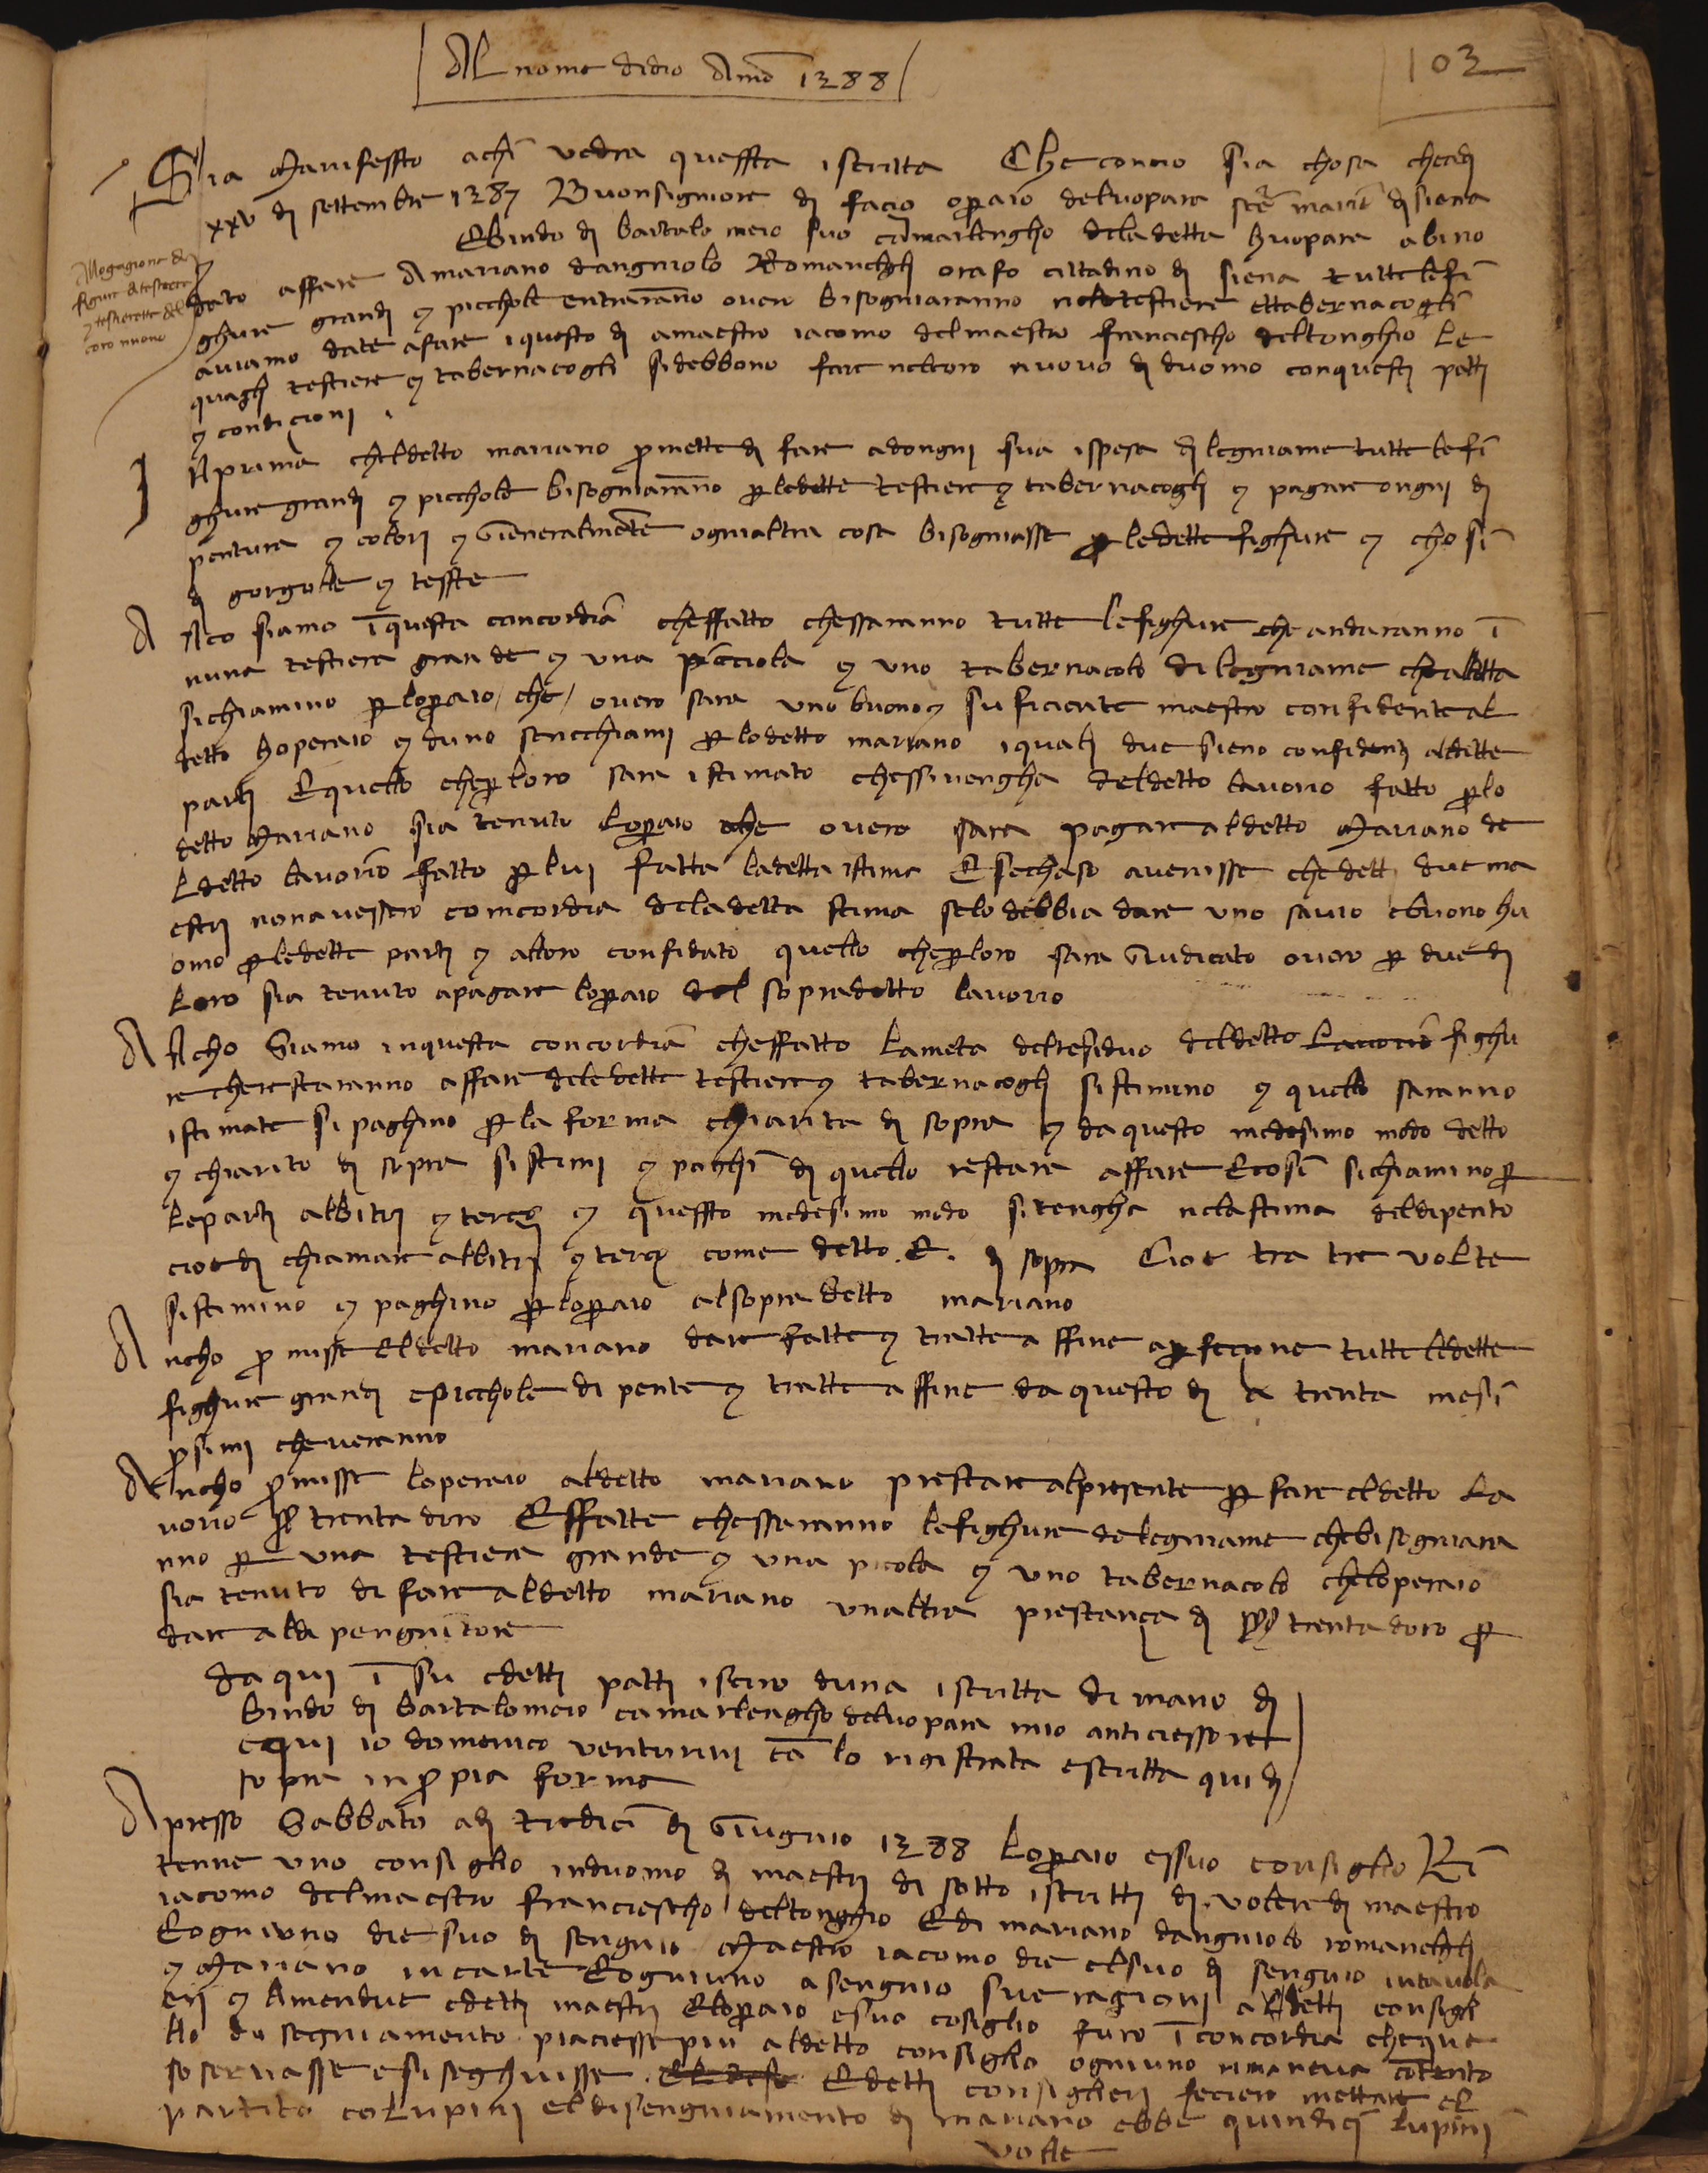 Al nome didio Anno 1388
103
Sia Manifessto achi vedra quessta iscritta Che conco sia chosa chea di
xxv di settembre 1387 Buonsigniore di facio oparaio deluopara sce marie di siena
E Bindo di bartalomeio suo camarlengho dela detta huopara abino
dato affare A mariano dangniolo Romanegli orafo cittadino di siena tutte le fi
ghure grandi e picchole entraranno overo bisogniaranno nele testiere ettabernacogli
aviamo date afare iquesto di amaestro iacomo delmaestro francescho deltonghio le
quagli testiere e tabernacogli sidebbono fare nelcoro nuovo di duomo conquesti patti
e condicioni
Allogagione di
figure di testiere
e testierette del
coro nuovo
I Nprima cheldetto mariano promette di fare adongni sua ispesa di legniame tutte lefi
ghure grandi e picchole bisogniaranno per ledette testiere e tabernacogli e pagare ongni di
pentura e colori e Generalmente ognialtra cosa bisogniasse per ledette fighure e chosi
di gorgolle e tesste
A Nco siamo in questa concordia cheffatto chessaranno tutte lefighure che andaranno i
nuna testiera grande e una picciola e uno tabernacolo di legniame chealotta
sichiamino per loparaio che overo sara uno buono e suficiente maestro confidente al
detto hoperaio e duno senechiami per lodetto mariano iquali due sieno confidenti aledette
parti E quello cheperloro sara istimato chessivengha deldetto lavorio fatto per lo
detto Mariano sia tenuto loparaio che overo sara pagare aldetto Mariano de
ldetto lavorio fatto per lui fatta ladetta istima E sechaso avenisse che detti due ma
estri nonavessero concordia deladetta stima selo debbia dare uno savio ebuono hu
omo per ledette parti e alloro confidato quello cheperloro sara Giudicato overo per duedi
loro sia tenuto apagare loparaio del sopradetto lavorio
A Ncho Siamo inquesta concordia cheffatto lameta delresiduo deldetto lavorio fighu
re cherestaranno affare delledette testiere e tabernacogli sistimino e quello saranno
istimate si paghino per la forma chiarita di sopra e da questo medesimo modo detto
e chiarito di sopra sistimi e paghi di quello restara affare Ecosi sichiamino per
leparti albitri e terço e quessto medesimo modo sitengha nelastima deldipento
cioe di chiamare albitri e terço come detto .E. di sopra Cioe tra tre volte
sistimino e paghino per loparaio alsopradetto mariano
A ncho promisse Eldetto mariano dare fatte e tratte a ffine a perfecione tutte ledette
fighure grandi epicchole dipente e tratte affine da questo di a trenta mesi
prosimi cheveranno
A ncho promisse loperaio aldetto mariano prestare alpresente per fare eldetto la
vorio trenta doro E ffatte chessaranno lefighure delegniame chebisogniara
nno per una testiera grande e una picola e uno tabernacolo cheloperaio
sia tenuto di fare aldetto mariano unaltra prestança di trenta doro per
dare aldi pengnitore
da qui i su edetti patti iscrivo duna iscritta di mano di
bindo di bartalomeio camarlengho deluopara mio anticiessore
equi io domenico venturini ca lo rigistrata escritta qui di
sopra in propia forma
Apresso Sabbato adi tredici di Giugnio 1388 loparaio essuo consiglio Ri
tenne uno consiglio induomo di maestri di sotto iscritti di volere di maestro
iacomo delmaestro francescho deltonghio Edi mariano dangniolo romanegli
E ogniuno die suo di sengnio Maestro iacomo die elsuo di sengnio intavola
e Mariano incarte E ogniuno asengnio sue ragioni aldetti consigli
eri e Amendue edetti maestri Eloparaio esuo cosiglio furo i concordia cheque
llo di segniamento piaciesse piu aldetto consiglio ogniuno rimaneva contento
soservasse esiseghuisse Edetti consiglieri feciero mettare el
partito colupini eldisengniamento di mariano ebbe quindici lupini
volte